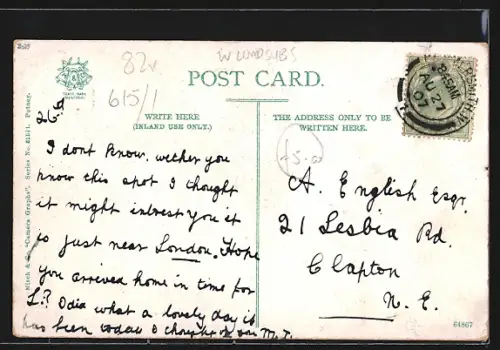 82v
W LOND SUBS
POST CARD.
615/1
TRADE MARK
26d
WRITE HERE
(INLAND USE ONLY.)
THE ADDRESS ONLY TO BE
WRITTEN HERE.
AU 27
07
£5.00
I dont know wether you
know this spot I thought
it might intrest you it
is just near London. Hope
you arrived home in time for
L.? Odia what a lovely day it
has been today I thought of you M. T.
A. English Esqr.
21 Lesbia Rd.
Clapton
N. E.
64867
"Camera Graphs". Series No.
Putney.